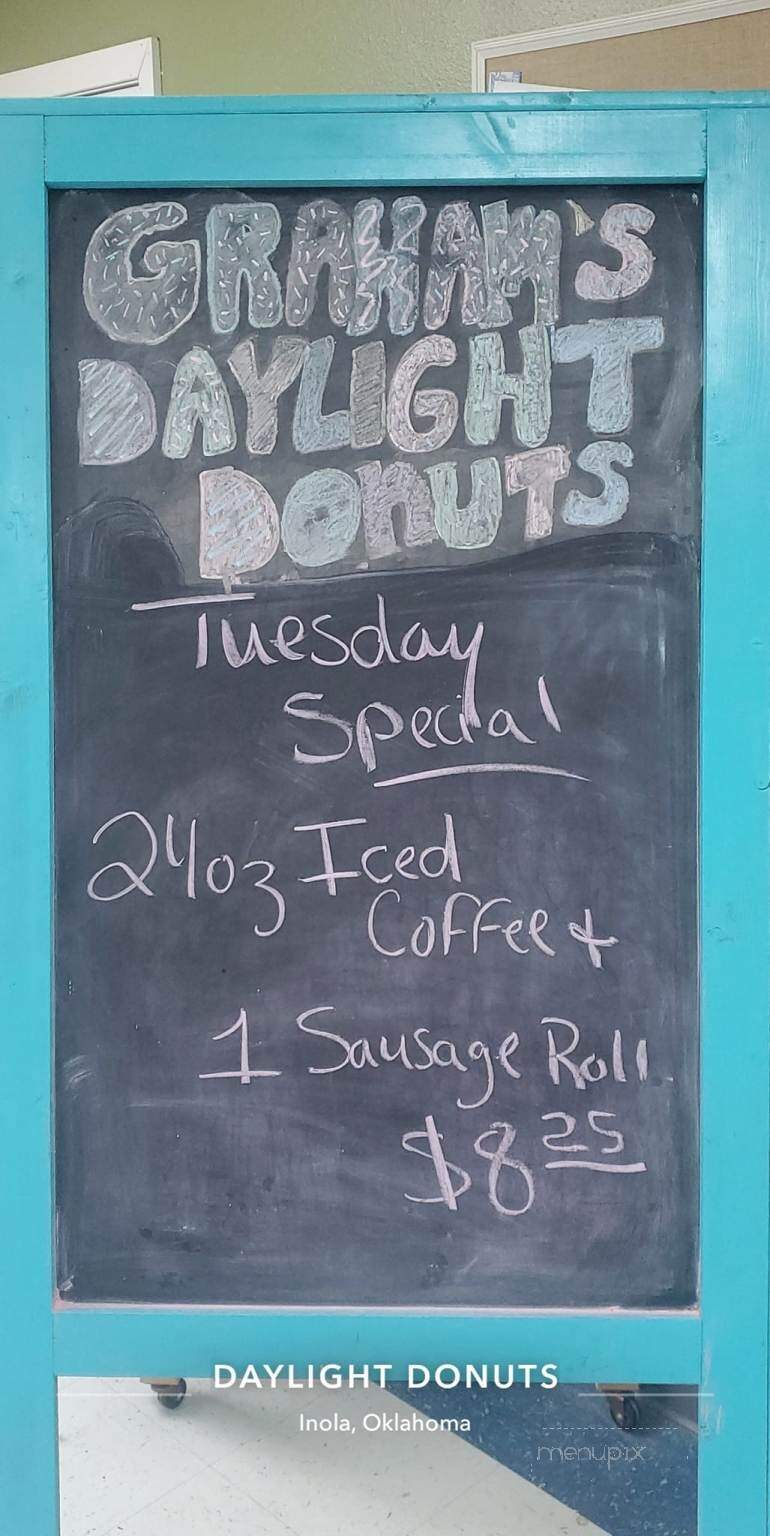 GRAHAM'S
DAYLIGHT
DONUTS
Tuesday
Special
24oz Iced
Coffee +
1 Sausage Roll
$8 25
DAYLIGHT DONUTS
Inola, Oklahoma
menupix